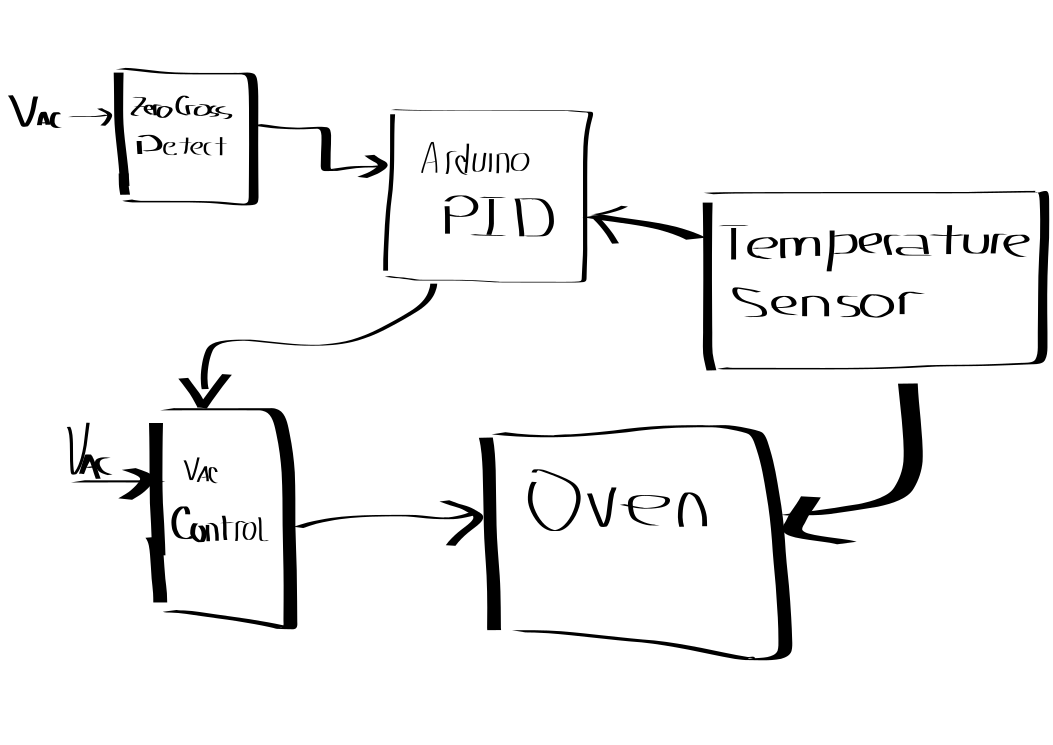 VAC
Zero Cross
Detect
Arduino
PID
Temperature
Sensor
VAC
VAC
Control
Oven